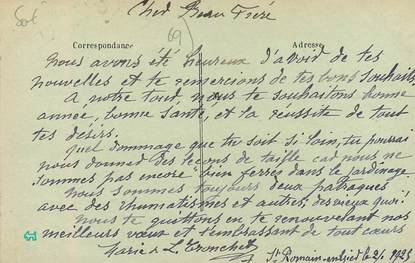 Cher Beau Frère
69
Correspondance
Adresse
nous avons été heureux d'avoir de tes
nouvelles et te remercions de tes bons souhaits
A notre tour, nous te souhaitons bonne
année, bonne santé, et la réussite de tout
tes désirs.
quel dommage que tu soit si loin, tu pourrais
nous donner des leçons de taille car nous ne
sommes pas encore bien ferrés dans le jardinage
nous sommes toujours deux patraques
avec des rhumatismes et autres, des vieux quoi!
nous te quittons en te renouvelant nos
meilleurs vœux et t'embrassant de tout cœurs
Marie & L. Tronchet
St Romain 2/1 1925